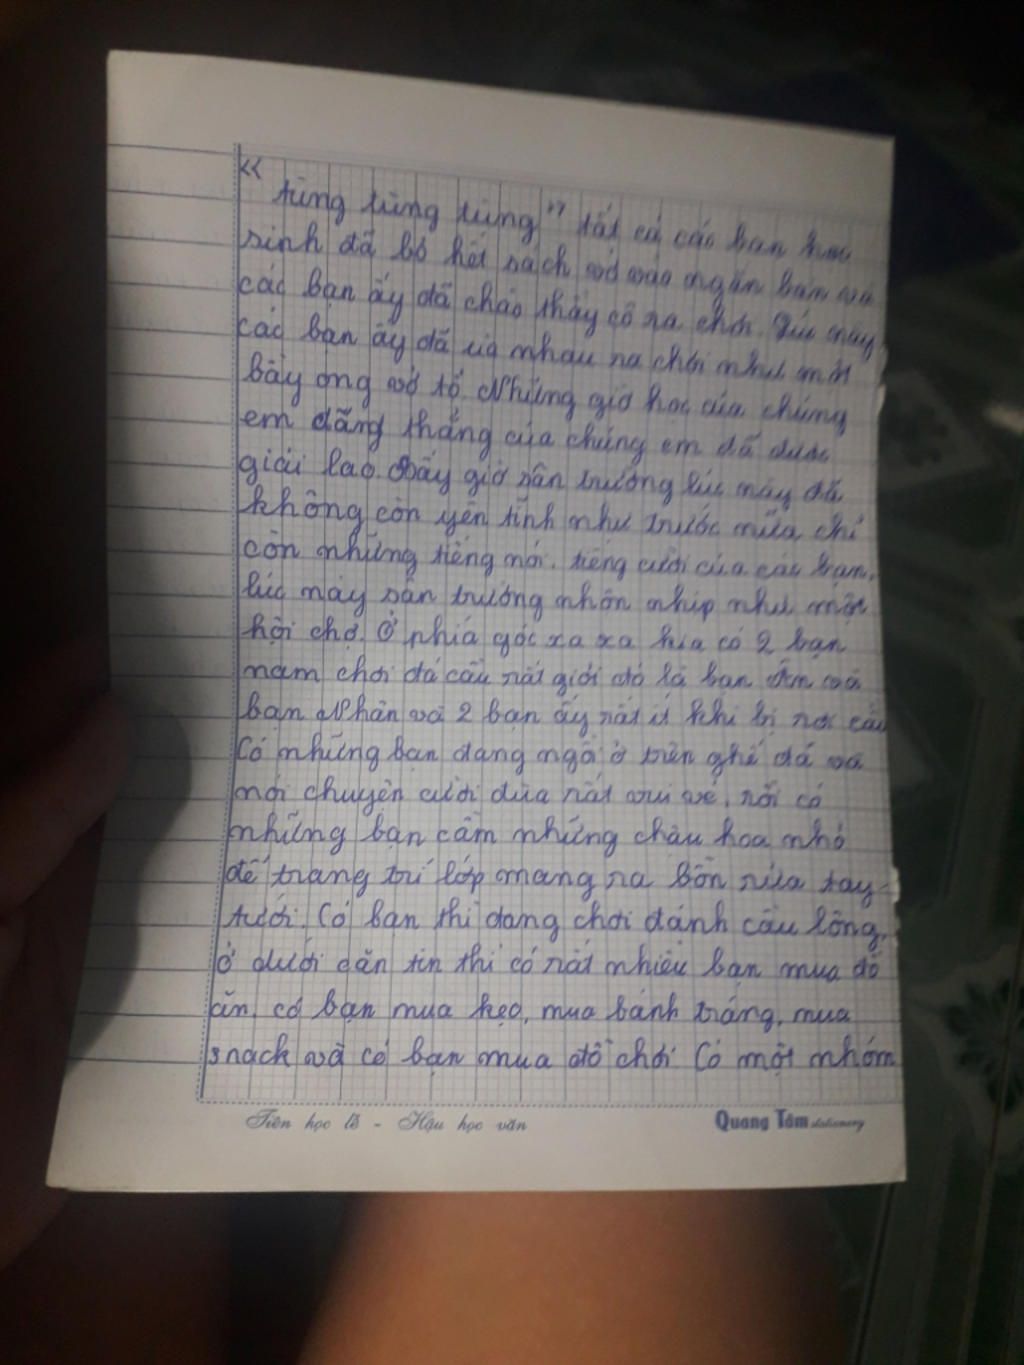 “ tùng tùng tùng” tất cả các bạn học
sinh đã bỏ hết sách vở vào ngăn bàn và
các bạn ấy đã chào thầy cô ra chơi. Lúc này
các bạn ấy đã ùa nhau ra chơi như một
bầy ong vỡ tổ. Những giờ học của chúng
em dẵng thẳng của chúng em đã được
giải lao. Bấy giờ sân trường lúc này đã
không còn yên tĩnh như trước nữa chỉ
còn những tiếng nói, tiếng cười của các bạn,
lúc này sân trường nhôn nhịp như một
hội chợ. Ở phía góc xa xa kia có 2 bạn
nam chơi đá cầu rất giỏi đó là bạn Ân và
bạn Nhân và 2 bạn ấy rất ít khi bị rơi cầu
Có những bạn đang ngồi ở trên ghế đá và
nói chuyện cười đùa rất vui vẻ, rồi có
những bạn cầm những chậu hoa nhỏ
để trang trí lớp mang ra bồn rửa tay
tưới. Có bạn thì đang chơi đánh cầu lông,
ở dưới căn tin thì có rất nhiều bạn mua đồ
ăn, có bạn mua kẹo, mua bánh tráng, mua
snack và có bạn mua đồ chơi. Có một nhóm
Tiên học lễ - Hậu học văn
Quang Tâm stationery